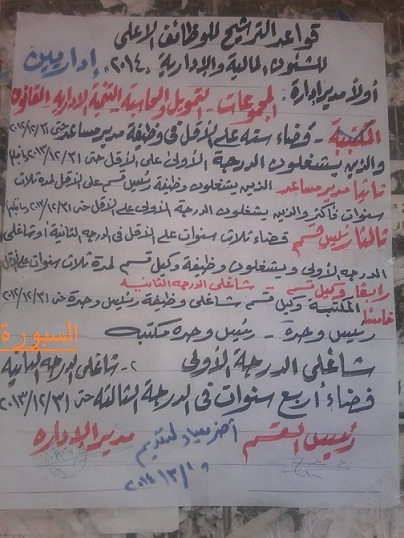 قواعد الترشيح للوظائف الاعلى
للشئون المالية والإدارية "٢٠١٤" إداريين
أولاً مدير إدارة: المجموعات - التمويل والمحاسبة - التنمية الادارية - القانون
المكتبية - قضاء سنه على الأقل فى وظيفة مدير مساعد حتى ٢٠١٢/١٢/٣١
والذين يشغلون الدرجة الأولى على الأقل حتى ٢٠١٣/١٢/٣١
ثانيا مدير مساعد الذين يشغلون وظيفة رئيس قسم على الأقل لمدة ثلاث
سنوات فأكثر والذين يشغلون الدرجة الأولى على الأقل حتى ٢٠١٢/١٢/٣١
ثالثا رئيس قسم قضاء ثلاث سنوات على الأقل فى الدرجة الثانية أو شاغلى
الدرجة الأولى ويشغلون وظيفة وكيل قسم لمدة ثلاث سنوات على الأقل
رابعا وكيل قسم - شاغلى الدرجة الثانية
خامسا المكتبية وكيل قسم شاغلى وظيفة رئيس وحدة حتى ٢٠١٢/١٢/٣١
رئيس وحدة - رئيس وحدة مكتبية
السبورة
شاغلى الدرجة الأولى ٢- شاغلى الدرجة الثانية
قضاء أربع سنوات فى الدرجة الثالثة حتى ٢٠١٣/١٢/٣١
رئيس القسم أخر ميعاد لتقديم مدير الإدارة